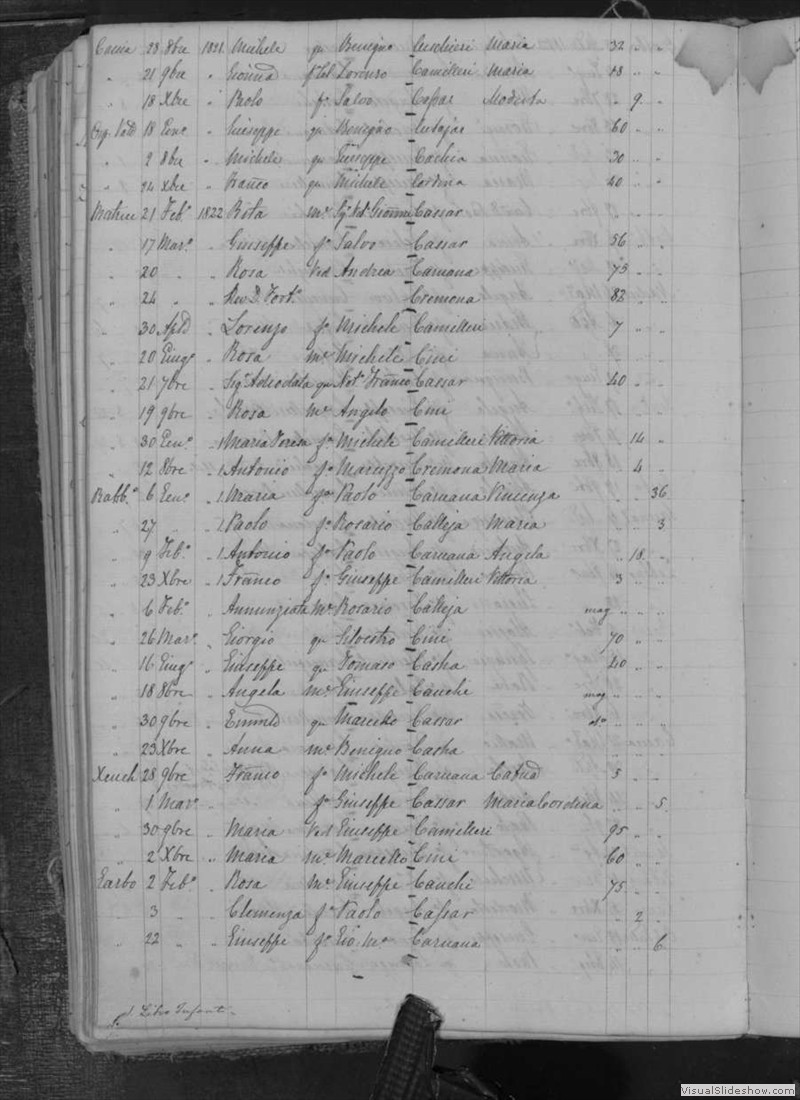 Cauia 28 8bre 1821 Michele qu Benigno Cuschieri Maria 32 " "
" 21 9bre " Gionna f. del Lorenzo Camilleri Maria 18 " "
" 18 Xbre " Paolo fo Salvo Cassar Modesta " 9 "
18 Gen. " Giuseppe qu Benigno Cutajar 60 " "
" 2 8bre " Michele qu Giuseppe Cachia 30 " "
" 24 Xbre " Franco qu Michele Cordina 40 " "
Matrice 21 Febo 1822 Rosa Mo Cassar
" 17 Maro " Giuseppe fo Salvo Cassar 56 " "
" 20 " " Rosa Ved Andrea Caruana 75 " "
" 24 " " Rev D. Forto Cremona 82 " "
" 30 " Lorenzo fo Michele Camilleri 7 " "
" 20 Giugo " Rosa Mo Michele Cini
" 21 7bre " Sigra Adeodata qu Noto Franco Cassar 40 " "
" 19 9bre " Rosa Mo Angelo Cini
" 30 Geno 1 Maria Teresa fo Michele Camilleri Vittoria " 14 "
" 12 Xbre 1 Antonio fo Maruzzo Cremona Maria " 4 "
Rabbo 6 Geno 1 Maria fo Paolo Caruana Vincenza " " 36
" 27 " 1 Paolo fo Rosario Calleja Maria " " 3
" 9 Febo 1 Antonio fo Paolo Caruana Angela " 18 "
" 23 Xbre 1 Franco fo Giuseppe Camilleri Vittoria 3 " "
" 6 Febo " Annunziata Mo Rosario Calleja mag " "
" 26 Maro " Giorgio qu Silvestro Cini 70 " "
" 16 Giugo " Giuseppe qu Tomaso Casha 20 " "
" 18 8bre " Angela Mo Giuseppe Cauchi mag " "
" 30 9bre " qu Marcello Cassar do " "
" 23 Xbre " Anna Mo Benigno Casha
Xeuch 28 9bre " Franco fo Michele Caruana Catud 5 " "
" 1 Maro fo Giuseppe Cassar Maria Cordina " " 5
" 30 9bre " Maria Ved Giuseppe Camilleri 95 " "
" 2 Xbre " Maria Mo Marcello Cini 60 " "
Garbo 2 Febo " Rosa Mo Giuseppe Cauchi 75 " "
" 3 " " Clemenza fo Paolo Cassar " 2 "
" 22 " " Giuseppe fo Gio. Ma Caruana " " 6
Libro Infanti
VisualSlideshow.com